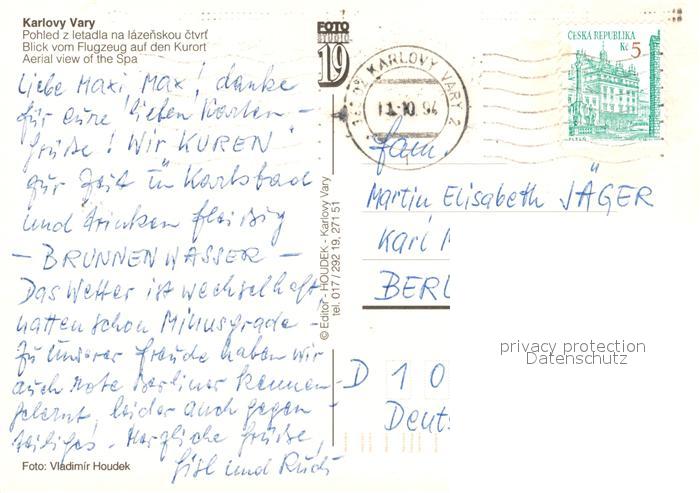 Karlovy Vary
Pohled z letadla na lázeňskou čtvrť
Blick vom Flugzeug auf den Kurort
Aerial view of the Spa
Liebe Maxi, Max! danke
für eure lieben Karten-
grüße! Wir KUREN
zur Zeit in Karlsbad
und trinken fleißig
- BRUNNENWASSER -
Das Wetter ist wechselhaft
hatten schon Minusgrade -
zu unserer Freude haben wir
auch nette Berliner kennen-
gelernt, leider auch gegen-
teiliges. Herzliche Grüße,
Gisl und Rudi
Foto: Vladimír Houdek
FOTO
STUDIO
19
© Editor - HOUDEK - Karlovy Vary
tel. 017 / 292 19, 271 51
KARLOVY VARY 2
11.10.94
ČESKÁ REPUBLIKA
Kč 5
PLZEŇ
Fam.
Martin Elisabeth JÄGER
Karl
BERL
D 10
Deut
privacy protection
Datenschutz